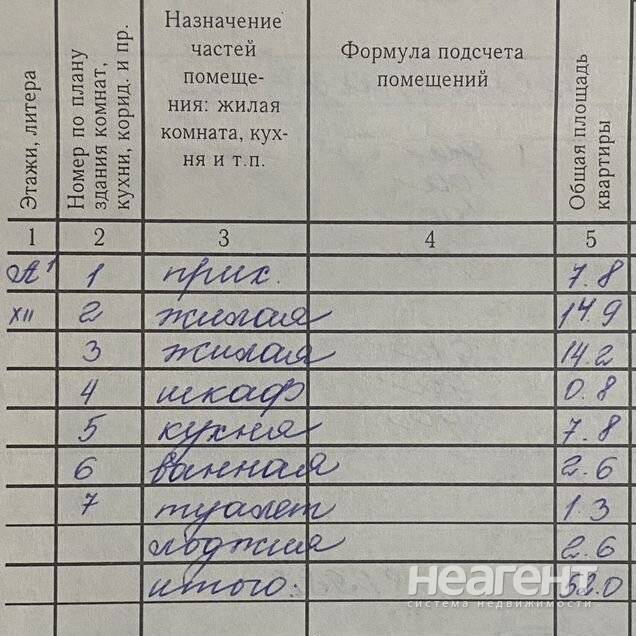 Этажи, литера
Номер по плану
здания комнат,
кухни, корид. и пр.
Назначение
частей
помеще-
ния: жилая
комната, кух-
ня и т.п.
Формула подсчета
помещений
Общая площадь
квартиры
1 2 3 4 5
А¹ 1 прих. 7.8
XII 2 жилая 14.9
3 жилая 14.2
4 шкаф 0.8
5 кухня 7.8
6 ванная 2.6
7 туалет 1.3
лоджия 2.6
итого: 52.0
неагент
система недвижимости